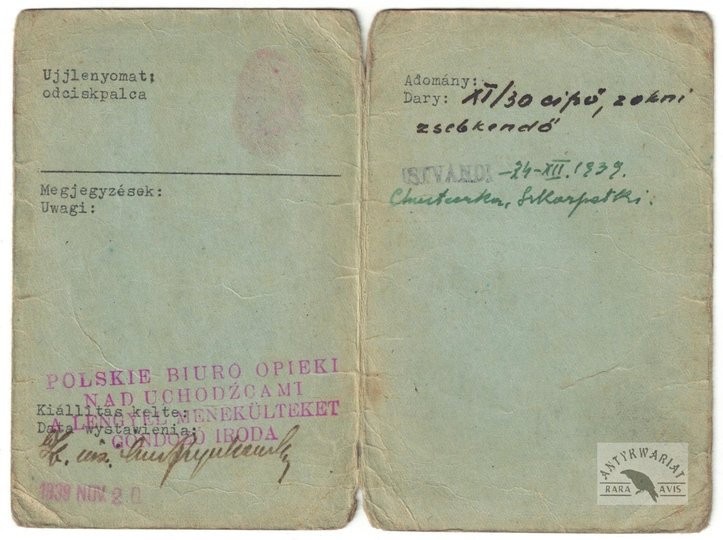 Ujjlenyomat:
odciskpalca
Megjegyzések:
Uwagi:
POLSKIE BIURO OPIEKI
NAD UCHODŹCAMI
Kiállitás kelte:
A LENGYEL MENEKÜLTEKET
Data wystawienia:
GONDOZÓ IRODA
1939 NOV. 2
Adomány:
Dary: XI/30 cipő, zokni
zsebkendő
-24-XII.1939.
Chusteczka, Skarpetki.
ANTYKWARIAT
RARA AVIS